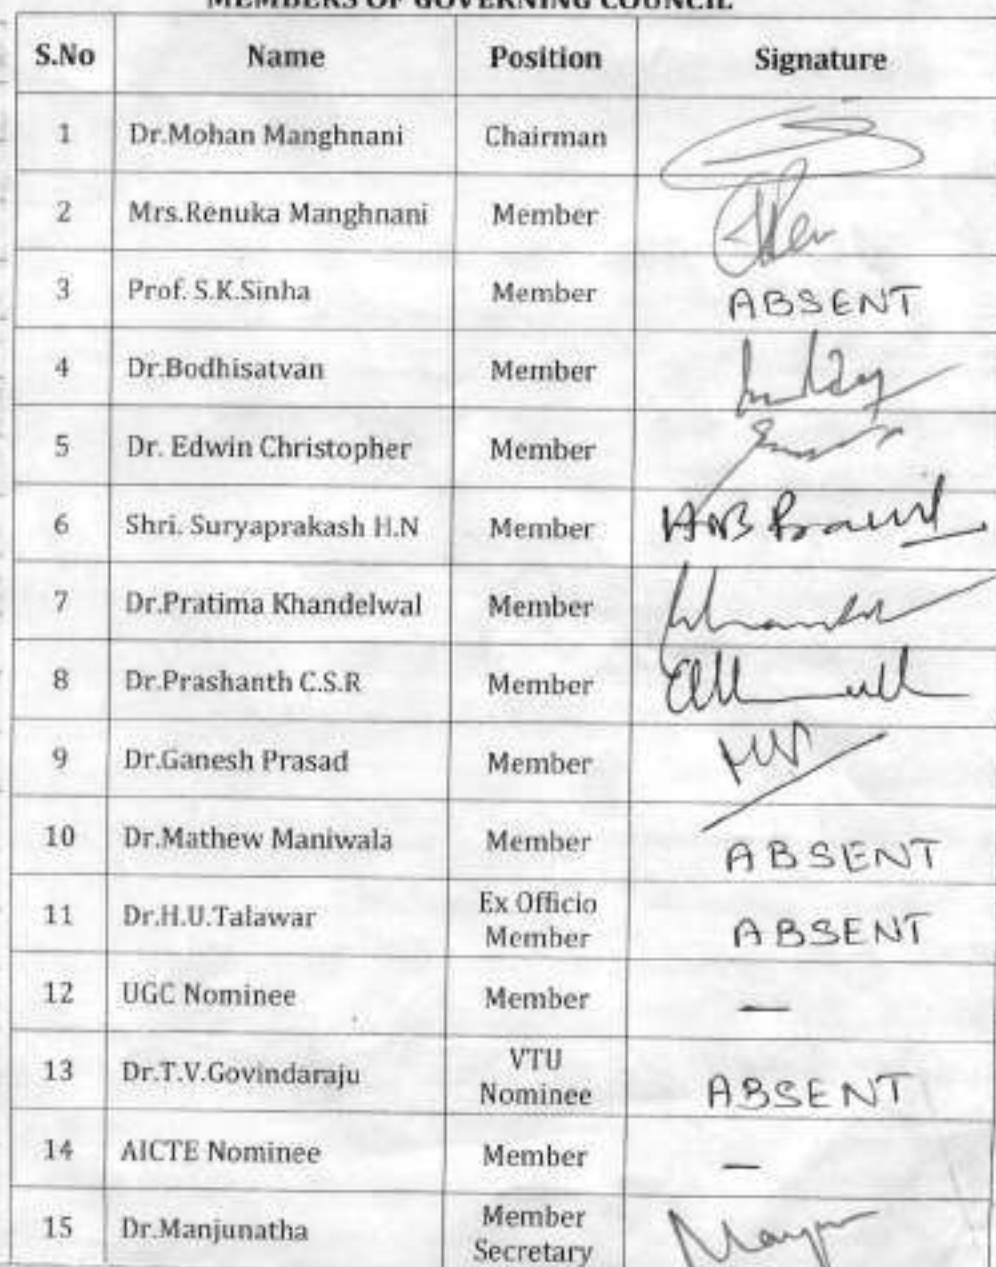 MEMBERS OF GOVERNING COUNCIL
S.No Name Position Signature
1 Dr.Mohan Manghnani Chairman
2 Mrs.Renuka Manghnani Member
3 Prof. S.K.Sinha Member ABSENT
4 Dr.Bodhisatvan Member
5 Dr. Edwin Christopher Member
6 Shri. Suryaprakash H.N Member
7 Dr.Pratima Khandelwal Member
8 Dr.Prashanth C.S.R Member
9 Dr.Ganesh Prasad Member
10 Dr.Mathew Maniwala Member ABSENT
11 Dr.H.U.Talawar Ex Officio
Member ABSENT
12 UGC Nominee Member —
13 Dr.T.V.Govindaraju VTU
Nominee ABSENT
14 AICTE Nominee Member —
15 Dr.Manjunatha Member
Secretary